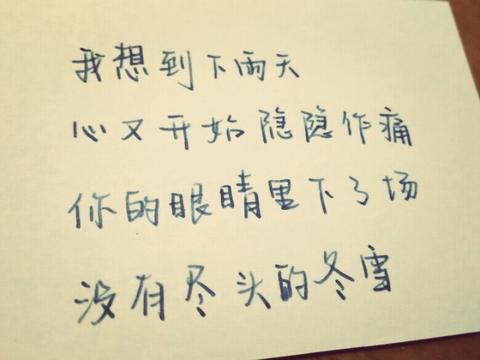 我想到下雨天
心又开始隐隐作痛
你的眼睛里下了场
没有尽头的冬雪